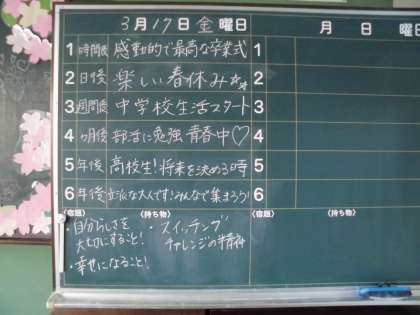 3月17日 金 曜日
1 時間後 感動的で最高な卒業式
2 日後 楽しい春休み☆☆
3 週間後 中学校生活スタート
4 か月後 部活に勉強 青春中♡
5 年後 高校生!将来を決める時
6 年後 立派な大人です!みんなで集まろう!
〈宿題〉 〈持ち物〉
・自分らしさを大切にすること!
・幸せになること!
・スイッチングチャレンジの精神
月 日 曜日
1
2
3
4
5
6
〈宿題〉 〈持ち物〉